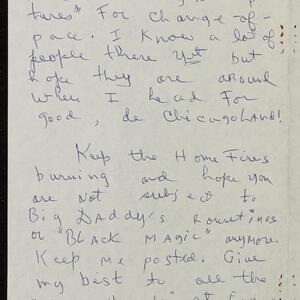 tures" For change-of-
pace. I Know a lot of
people there yet but
hope they are around
when I head For
good, de Chicagoland!
Keep the Home Fires
burning and hope you
are not subject to
Big Daddy's Routines
or "Black Magic" anymore.
Keep me posted. Give
my best to all the